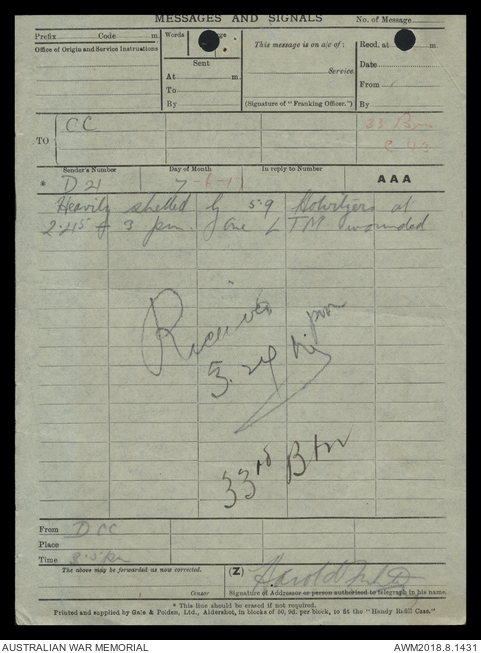 MESSAGES AND SIGNALS
No. of Message
Prefix Code m.
Words
Recd. at m.
Office of Origin and Service Instructions
This message is on a/c of :
Sent
Date
At m.
Service
From
To
By
(Signature of "Franking Officer.")
By
TO
CC
33 Bn
Sender's Number
Day of Month
In reply to Number
AAA
* D 21
7-6-17
Heavily shelled by 5.9 Howitzers at
3 pm. one L TM wounded
Received
5.24 pm
33rd Btn
From D CC
Place
Time
The above may be forwarded as now corrected.
(Z)
Harold
Censor
Signature of Addressor or person authorised to telegraph in his name.
* This line should be erased if not required.
Printed and supplied by Gale & Polden, Ltd., Aldershot, in blocks of 50, 9d. per block, to fit the "Handy Refill Case."
AUSTRALIAN WAR MEMORIAL
AWM2018.8.1431